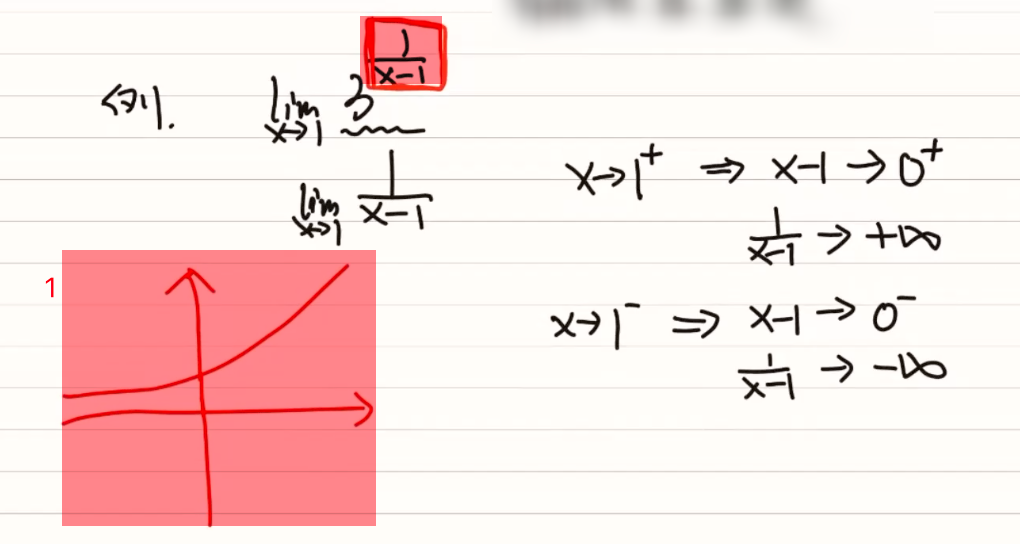 例1. lim x→1 3^(1/(x-1))
lim x→1 1/(x-1)
x→1⁺ ⇒ x-1 → 0⁺
1/(x-1) → +∞
x→1⁻ ⇒ x-1 → 0⁻
1/(x-1) → -∞
1